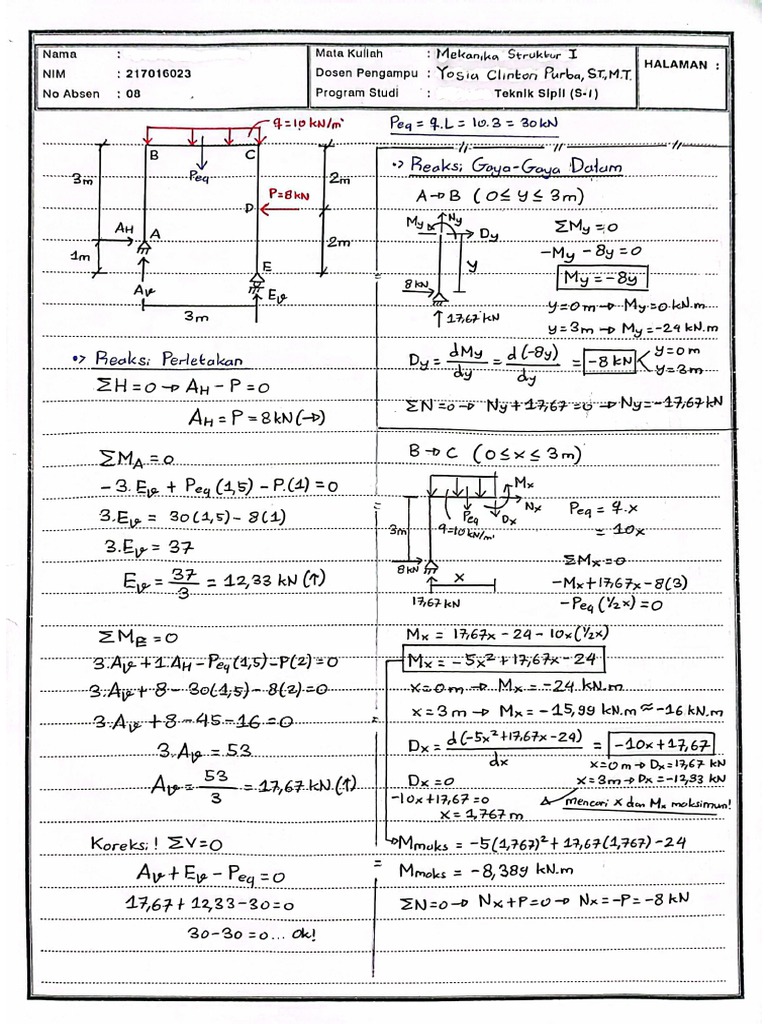 Nama :
NIM : 217016023
No Absen : 08
Mata Kuliah : Mekanika Struktur I
Dosen Pengampu : Yosia Clinton Purba, ST, M.T.
Program Studi : Teknik Sipil (S-1)
HALAMAN :
q=10 kN/m'
B
C
Peq
3m
2m
P=8kN
D
AH
A
1m
2m
E
Av
Ev
3m
•> Reaksi Perletakan
ΣH=0 → AH - P = 0
AH = P = 8 kN (→)
ΣMA = 0
-3.Ev + Peq (1,5) - P.(1) = 0
3.Ev = 30(1,5) - 8(1)
3.Ev = 37
Ev = 37/3 = 12,33 kN (↑)
ΣME = 0
3.Av + 1.AH - Peq (1,5) - P(2) = 0
3.Av + 8 - 30(1,5) - 8(2) = 0
3.Av + 8 - 45 - 16 = 0
3.Av = 53
Av = 53/3 = 17,67 kN (↑)
Koreksi! ΣV=0
Av + Ev - Peq = 0
17,67 + 12,33 - 30 = 0
30 - 30 = 0 ... Ok!
Peq = q.L = 10.3 = 30 kN
•> Reaksi Gaya-Gaya Dalam
A→B (0 ≤ y ≤ 3m)
My
Ny
Dy
y
8 kN
17,67 kN
ΣMy = 0
-My - 8y = 0
My = -8y
y=0m → My = 0 kN.m
y=3m → My = -24 kN.m
Dy = dMy/dy = d(-8y)/dy = -8 kN
y=0m
y=3m
ΣN=0 → Ny + 17,67 = 0 → Ny = -17,67 kN
B→C (0 ≤ x ≤ 3m)
Mx
Nx
Dx
Peq
q=10kN/m'
3m
8 kN
x
17,67 kN
Peq = q.x
= 10x
ΣMx = 0
-Mx + 17,67x - 8(3)
- Peq (1/2x) = 0
Mx = 17,67x - 24 - 10x(1/2x)
Mx = -5x² + 17,67x - 24
x=0m → Mx = -24 kN.m
x=3m → Mx = -15,99 kN.m ≈ -16 kN.m
Dx = d(-5x²+17,67x-24)/dx = -10x + 17,67
x=0m → Dx = 17,67 kN
x=3m → Dx = -12,33 kN
Dx = 0
-10x + 17,67 = 0
x = 1,767 m
mencari x dan Mx maksimum!
Mmaks = -5(1,767)² + 17,67(1,767) - 24
Mmaks = -8,389 kN.m
ΣN=0 → Nx + P = 0 → Nx = -P = -8 kN